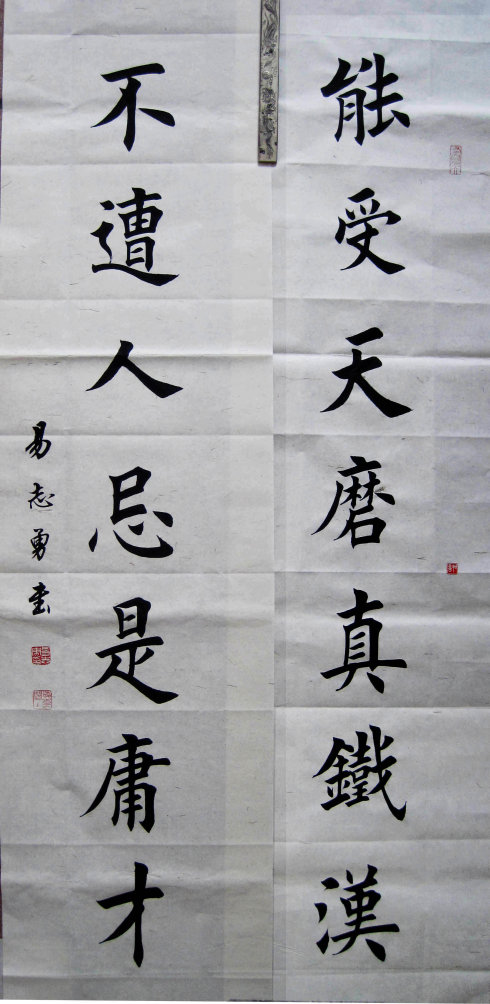 能受天磨真鐵漢
不遭人忌是庸才
易志勇書